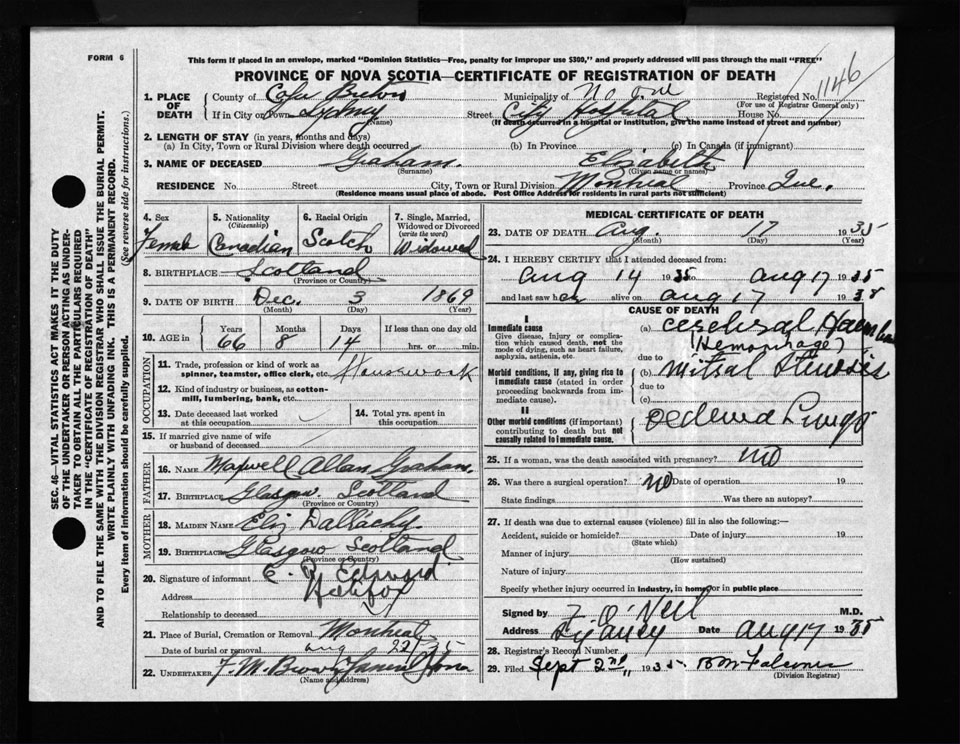 FORM 6
This form if placed in an envelope, marked "Dominion Statistics—Free, penalty for improper use $300," and properly addressed will pass through the mail "FREE"
PROVINCE OF NOVA SCOTIA—CERTIFICATE OF REGISTRATION OF DEATH
1146
1. PLACE OF DEATH
County of Cape Breton Municipality of Registered No.
(For use of Registrar General only)
If in City or Town Sydney Street City Hospital House No.
(Name) (If death occurred in a hospital or institution, give the name instead of street and number)
2. LENGTH OF STAY (in years, months and days)
(a) In City, Town or Rural Division where death occurred (b) In Province (c) In Canada (if immigrant)
3. NAME OF DECEASED Graham. Elizabeth
(Surname) (Given name or names)
RESIDENCE No. Street City, Town or Rural Division Montreal Province Que.
(Residence means usual place of abode. Post Office Address for residents in rural parts not sufficient)
4. Sex Female
5. Nationality (Citizenship) Canadian
6. Racial Origin Scotch
7. Single, Married, Widowed or Divorced (write the word) Widowed
8. BIRTHPLACE Scotland
(Province or Country)
9. DATE OF BIRTH Dec. 3 1869
(Month) (Day) (Year)
10. AGE in Years Months Days If less than one day old
66 8 14 hrs. or min.
OCCUPATION
11. Trade, profession or kind of work as spinner, teamster, office clerk, etc. Housework
12. Kind of industry or business, as cotton-mill, lumbering, bank, etc.
13. Date deceased last worked at this occupation
14. Total yrs. spent in this occupation
15. If married give name of wife or husband of deceased
FATHER
16. NAME Maxwell Allan Graham.
17. BIRTHPLACE Glasgow. Scotland
(Province or Country)
MOTHER
18. MAIDEN NAME Eliz Dallachy.
19. BIRTHPLACE Glasgow Scotland
(Province or Country)
20. Signature of informant E. Edward
Address Halifax
Relationship to deceased
21. Place of Burial, Cremation or Removal Montreal
Date of burial or removal Aug 22/35
22. UNDERTAKER F. M. Brown Funeral Home
(Name and address)
MEDICAL CERTIFICATE OF DEATH
23. DATE OF DEATH Aug. 17 1935
(Month) (Day) (Year)
24. I HEREBY CERTIFY that I attended deceased from:
Aug 14 1935 Aug 17 1935
and last saw her alive on Aug 17 1935
CAUSE OF DEATH
I
Immediate cause
Give disease, injury or complication which caused death, not the mode of dying, such as heart failure, asphyxia, asthenia, etc.
(a) Cerebral
(Hemorrhage)
due to
Morbid conditions, if any, giving rise to immediate cause (stated in order proceeding backwards from immediate cause).
(b) Mitral Stenosis
due to
(c)
II
Other morbid conditions (if important) contributing to death but not causally related to immediate cause.
Oedema Lungs
25. If a woman, was the death associated with pregnancy? no
26. Was there a surgical operation? no Date of operation 19
State findings Was there an autopsy?
27. If death was due to external causes (violence) fill in also the following:—
Accident, suicide or homicide? Date of injury 19
(State which)
Manner of injury
(How sustained)
Nature of injury
Specify whether injury occurred in industry, in home, or in public place
Signed by F. O'Neil M.D.
Address Sydney Date Aug 17 1935
28. Registrar's Record Number
29. Filed Sept 2nd, 1935 Falconer
(Division Registrar)
SEC. 46—VITAL STATISTICS ACT MAKES IT THE DUTY
OF THE UNDERTAKER OR PERSON ACTING AS UNDER-
TAKER TO OBTAIN ALL THE PARTICULARS REQUIRED
IN THE "CERTIFICATE OF REGISTRATION OF DEATH"
AND TO FILE THE SAME WITH THE DIVISION REGISTRAR WHO SHALL ISSUE THE BURIAL PERMIT.
WRITE PLAINLY WITH UNFADING INK. THIS IS A PERMANENT RECORD.
Every item of information should be carefully supplied. (See reverse side for instructions.)